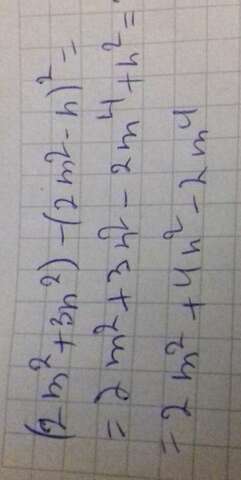 (2m²+3n²)-(2m²-n)²=
=2m²+3n²-2m⁴+n²=
=2m²+4n²-2m⁴